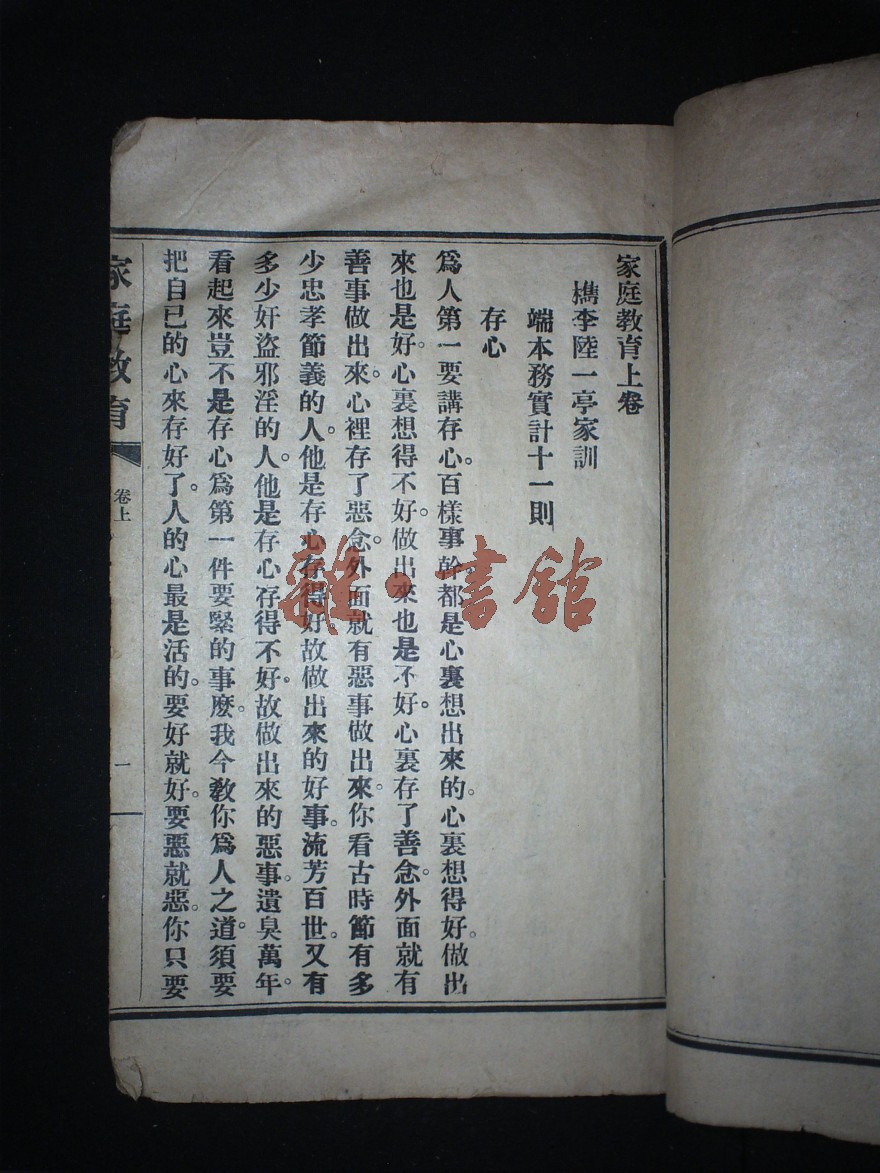 家庭教育上卷
檇李陸一亭家訓
端本務實計十一則
存心
爲人第一要講存心。百樣事幹都是心裏想出來的。心裏想得好。做出
來也是好。心裏想得不好。做出來也是不好。心裏存了善念。外面就有
善事做出來。心裡存了惡念。外面就有惡事做出來。你看古時節有多
少忠孝節義的人。他是存心存得好。故做出來的好事。流芳百世。又有
多少奸盜邪淫的人。他是存心存得不好。故做出來的惡事。遺臭萬年。
看起來豈不是存心爲第一件要緊的事麽。我今教你爲人之道。須要
把自己的心來存好了。人的心最是活的。要好就好。要惡就惡。你只要
家庭教育
卷上
一
雜·書館